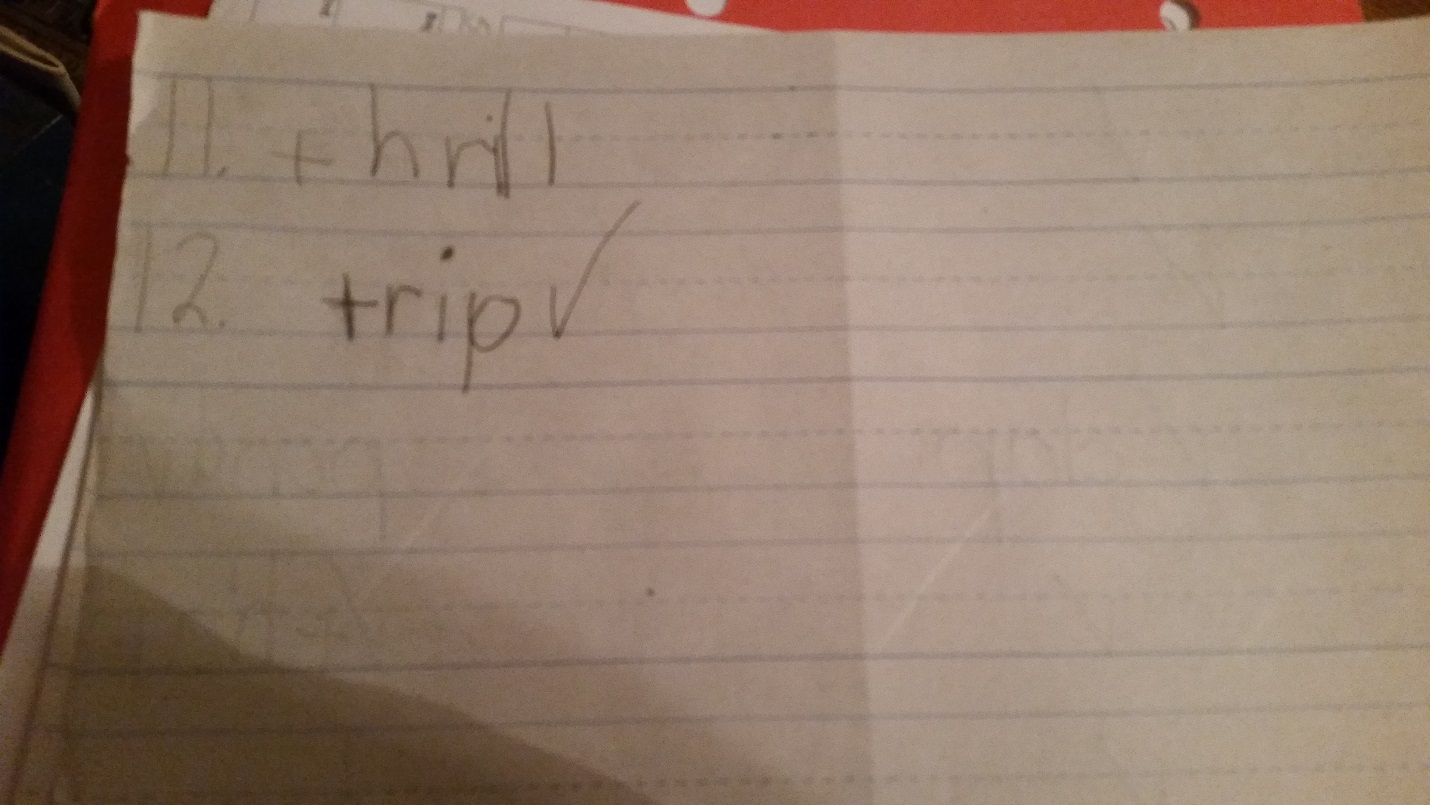 11. thrill
12. trip✓